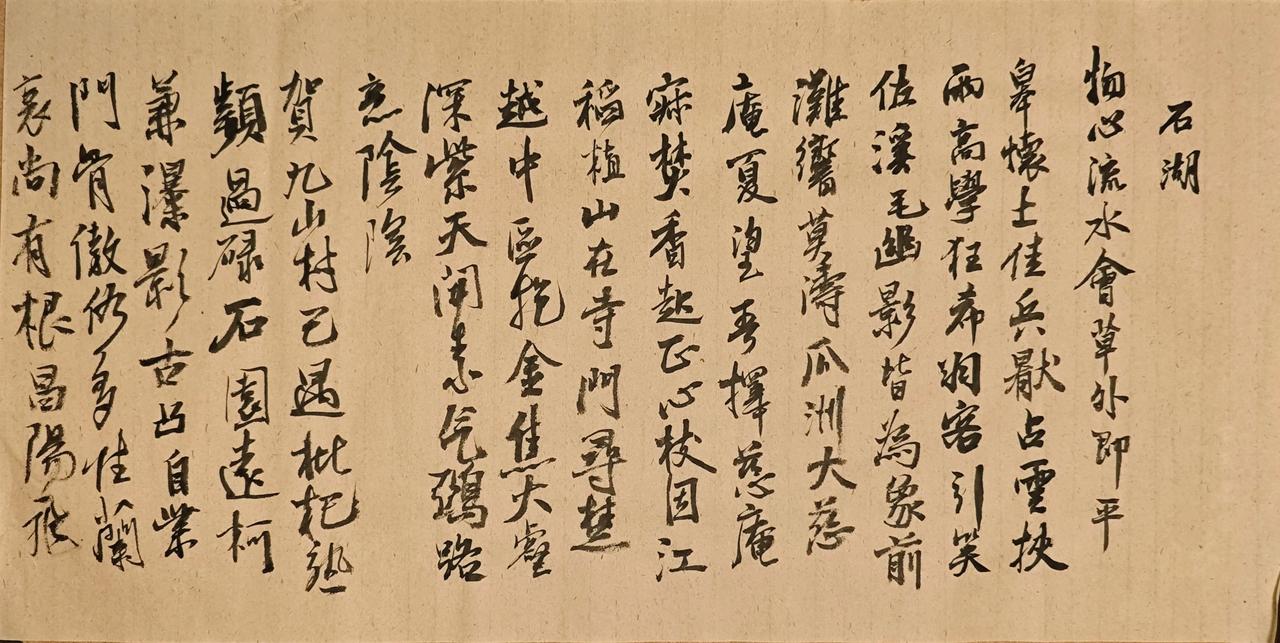 石湖
物心流水會草外即平
皋懷土佳兵厭占雲挾
雨高學狂希羽客引笑
佐溪毛幽影皆為象前
灘響莫濤瓜洲大慈
庵夏望吾擇慈庵
寐焚香起正心杖因江
稻植山在寺門尋楚
越中區抱金焦大壑
深柴天開素氣鷄路
意陰陰
賀九山村已過枇杷熟
顰過碌石園遠柯
兼瀑影古凸自業
門骨傲俗多性蘭
哀尚有根昌陽